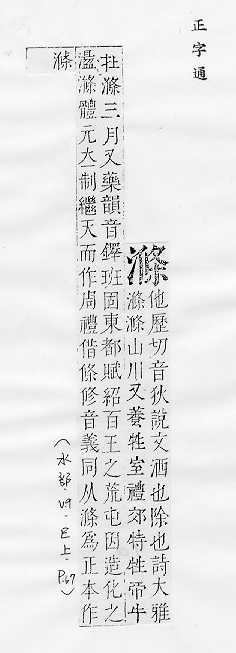 正字通
滌
他歷切音狄說文洒也除也詩大雅
滌滌山川又養牲室禮郊特牲帝牛
扗滌三月又藥韻音鐸班固東都賦紹百王之荒屯因造化之
盪滌體元立制繼天而作周禮借條修音義同从滌為正本作
滌
(水部.V9.巳上 P.67)